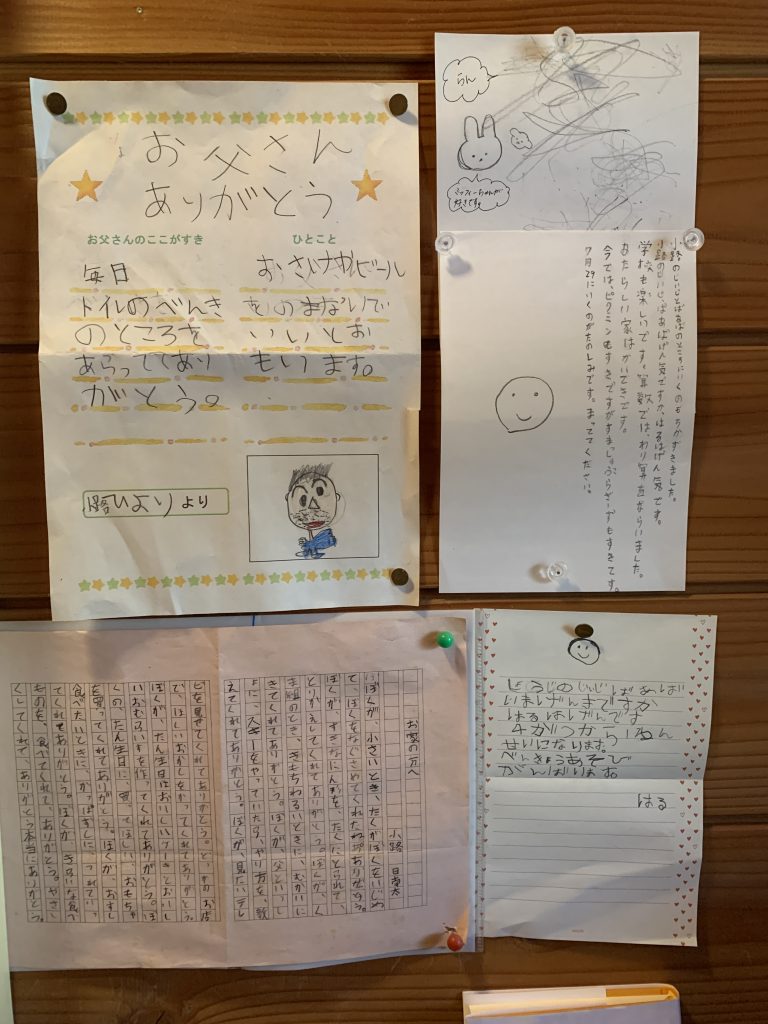 お父さん
ありがとう
お父さんのここがすき
毎日
トイレのべんき
のところを
あらっててあり
がとう。
ひとこと
おさけやビール
をのまないで
いいとお
もいます。
ひより より
らん
ミッフィーちゃんが
好きです。
小路のじいじとばあばのところにいくのもちかずきました。
小路のじいじ、ばあばげん気ですか、はるはげん気です。
学校も楽しいです。算数では、わり算をならいました。
あたらしい家はかいてきです。
今では、ピクミンもすきですがすまっしゅぶらざーずもすきです。
7月29にいくのがたのしみです。まっててください。
お家の方へ
小路
ぼくが、小さいとき、たくがぼくをいじめ
て、ぼくをなぐさめてくれたねありがとう。
ぼくが、すきなにん形を、たくにとられて、
とりかえしてくれてありがとう。ぼくが、く
き組のとき、きもちわるいときに、むかいに
きてくれてありがとう。ぼくが、父といっし
ょに、スキーをやっていたら、やり方を、教
えてくれてありがとう。ぼくが、見たいテレ
ビを見せてくれてありがとう。
で、ほしいおかしをかってくれてありがとう。
ぼくが、たん生日はおいしいケーキとおいし
いおむらいすを作ってくれてありがとう。ぼ
くの、たん生日に、買ってほしい、おもちゃ
を買ってくれてありがとう。ぼくが、おすし
食べたいときに、かっぱずしに、つれていっ
てくれてありがとう。ぼくが、きらいな食べ
ものを、食べてくれて、ありがとう。やさし
くしてくれて、ありがとう本当にありがとう。
しょうじのじいじばあば
いまげんきですか
はるはげんきです
4がつから1ねん
せいになります。
べんきょうあそび
がんばります
はる